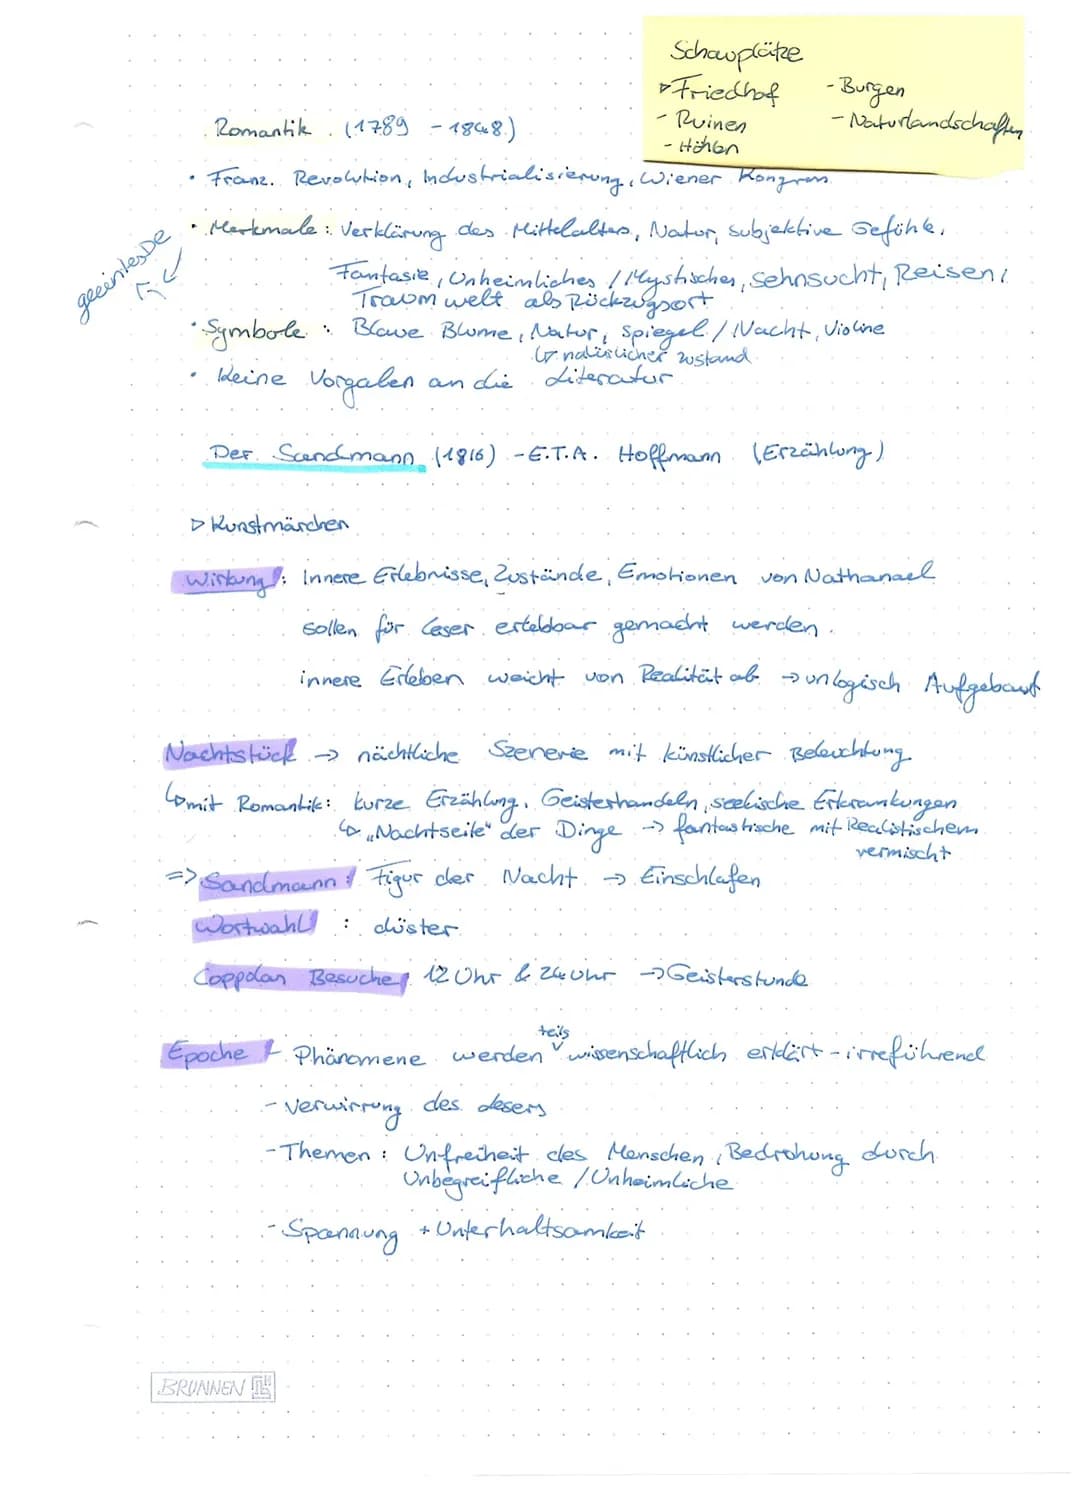 Schauplätze
▹Friedhof - Burgen
- Ruinen - Naturlandschaften
- Höhlen
Romantik (1789 - 1848)
• Franz. Revolution, Industrialisierung, Wiener Kongress
geeintes De
• Merkmale: Verklärung des Mittelalters, Natur, subjektive Gefühle,
Fantasie, Unheimliches / Mystisches, Sehnsucht, Reisen,
Traumwelt als Rückzugsort
• Symbole: Blaue Blume, Natur, Spiegel / Nacht, Violine
↳ natürlicher zustand
• Keine Vorgaben an die Literatur
Der Sandmann (1816) - E.T.A. Hoffmann (Erzählung)
▹ Kunstmärchen
Wirkung: Innere Erlebnisse, Zustände, Emotionen von Nathanael
sollen für Leser erlebbar gemacht werden.
innere Erleben weicht von Realität ab → unlogisch Aufgebaut
Nachtstück → nächtliche Szenerie mit künstlicher Beleuchtung
↳ mit Romantik: kurze Erzählung, Geisterhandeln, seelische Erkrankungen
↳ „Nachtseite" der Dinge → fantastische mit Realistischem
vermischt
=> Sandmann: Figur der Nacht → Einschlafen
Wortwahl: düster
Besuche 12 Uhr & 24 Uhr → Geisterstunde
teils
Epoche - Phänomene werden wissenschaftlich erklärt - irreführend
- Verwirrung des Lesers
- Themen: Unfreiheit des Menschen, Bedrohung durch
Unbegreifliche / Unheimliche
- Spannung + Unterhaltsamkeit
BRUNNEN